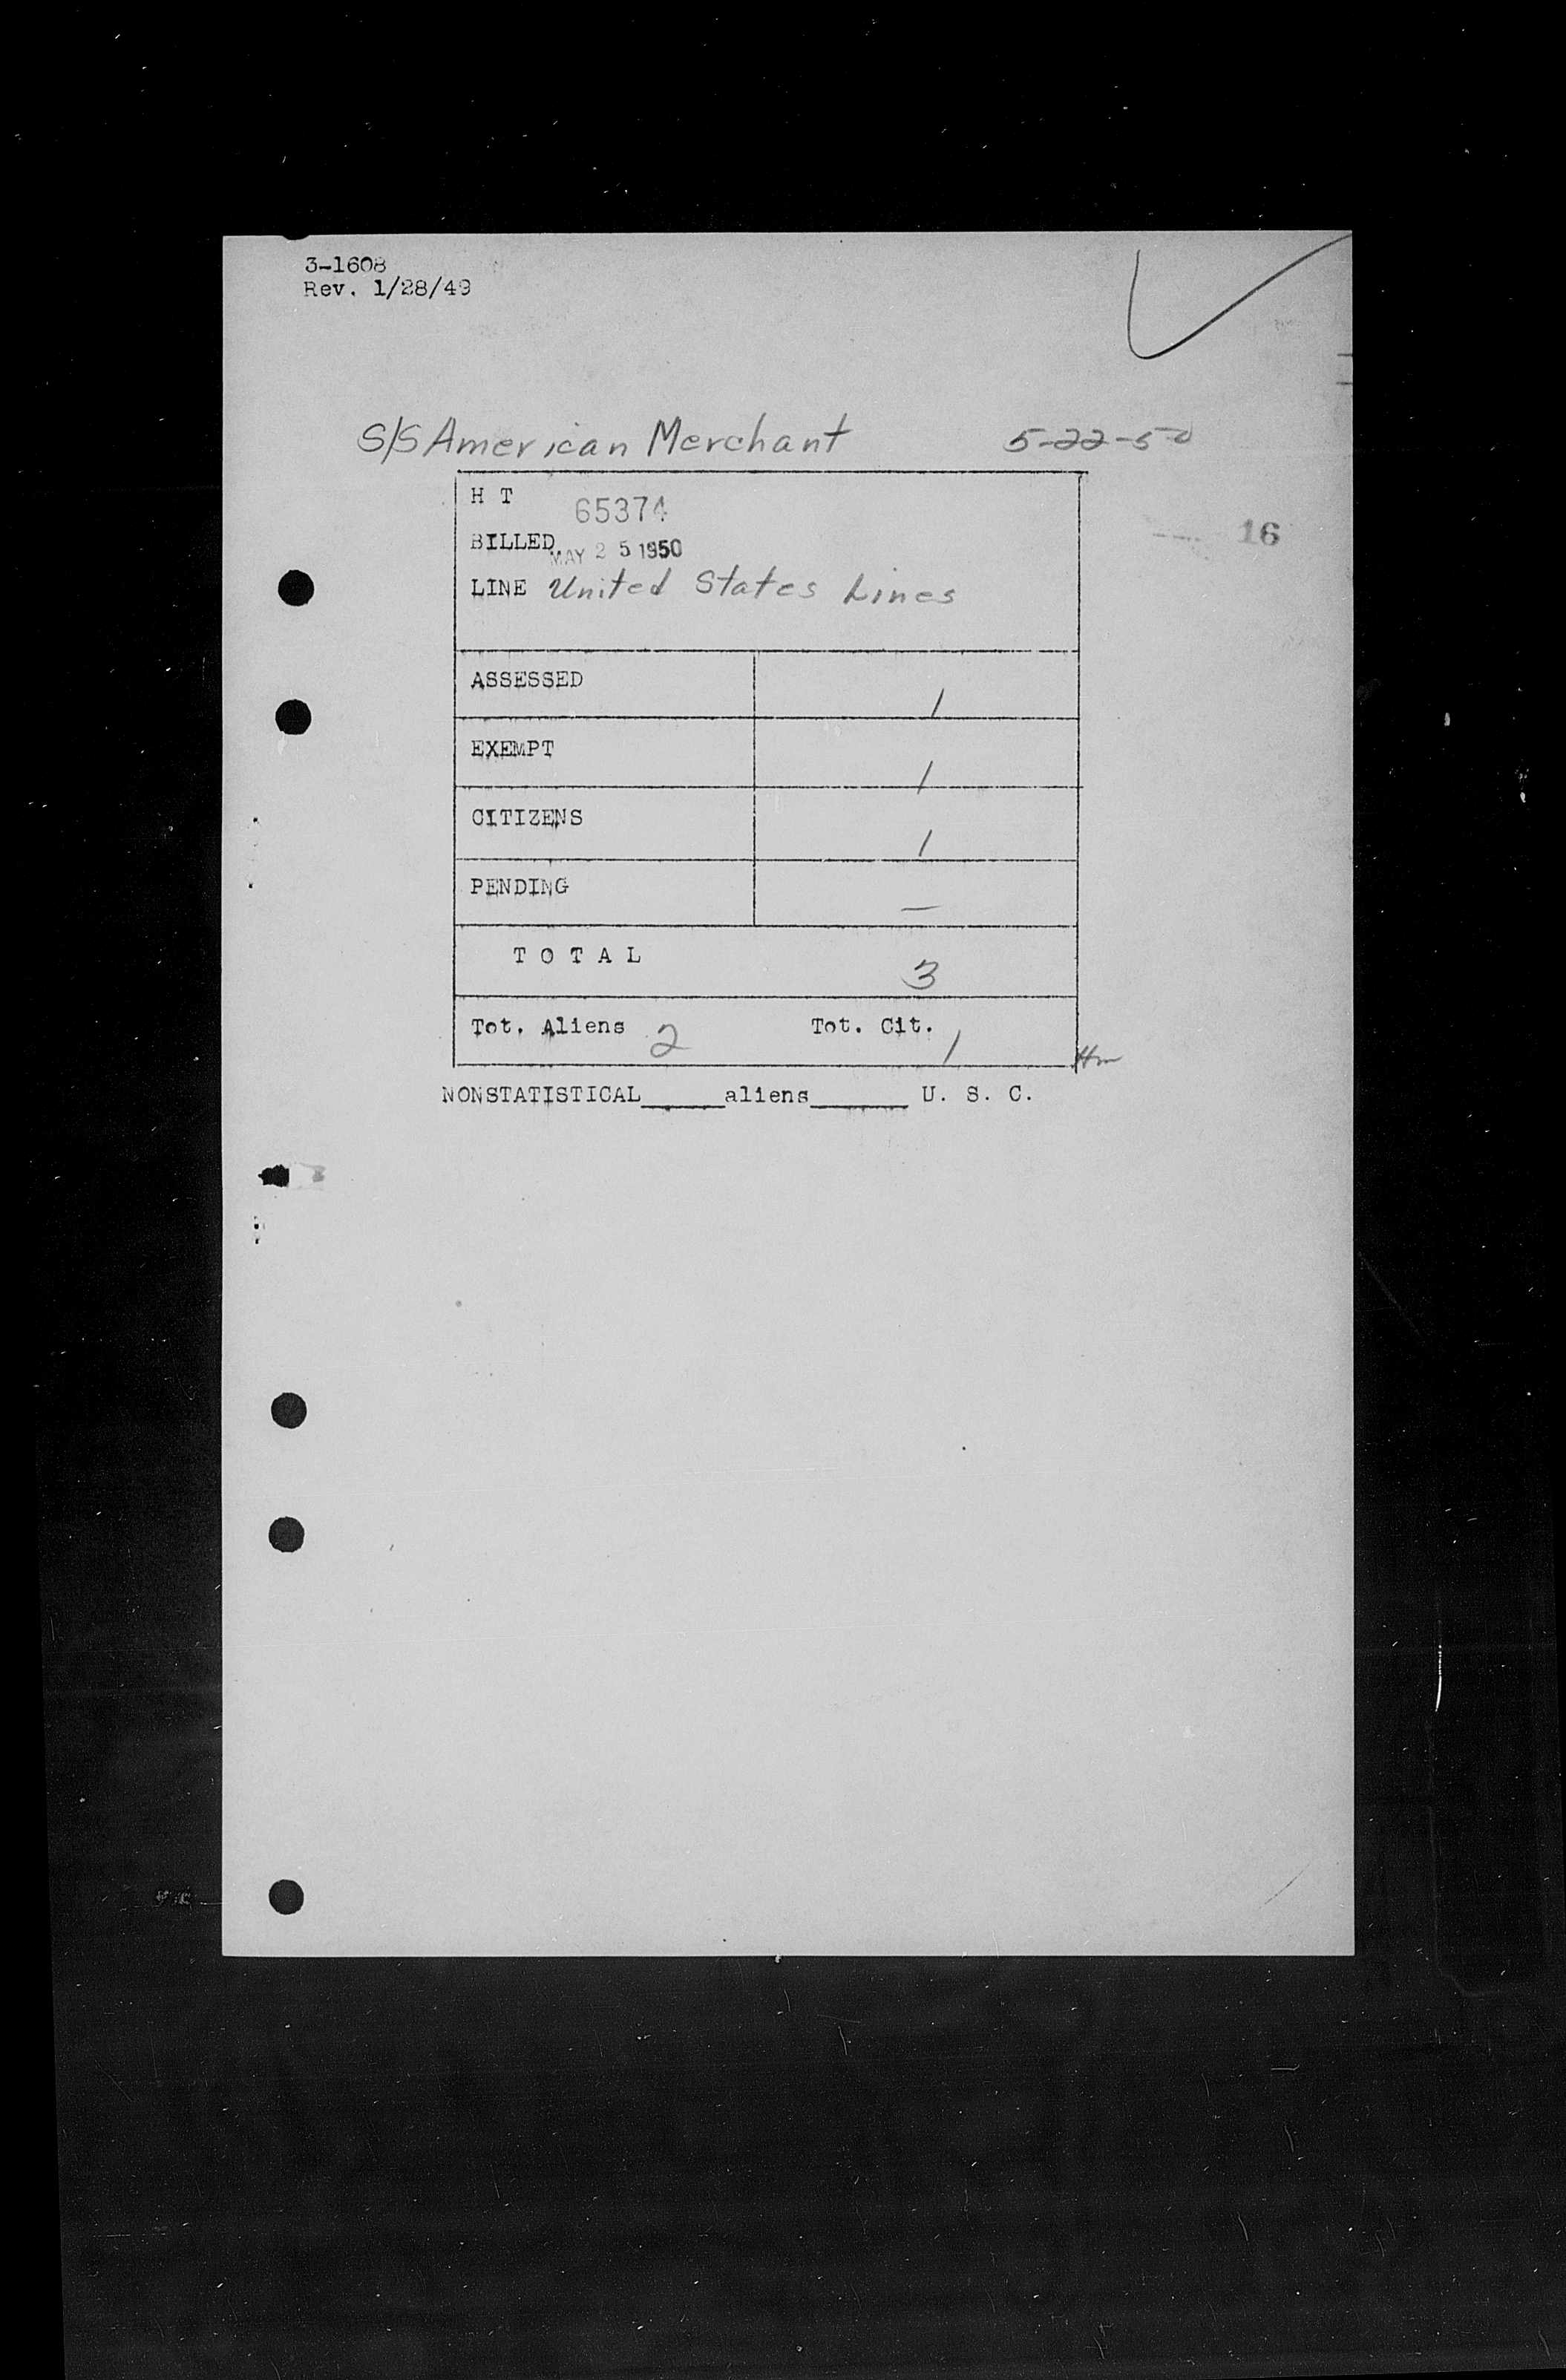 3-1608
Rev. 1/28/49
S/S American Merchant 5-22-50
H T 65374
16
BILLED MAY 25 1950
LINE United States Lines
ASSESSED 1
EXEMPT 1
CITIZENS 1
PENDING —
T O T A L 3
Tot. Aliens 2 Tot. Cit. 1
NONSTATISTICAL_____aliens______ U. S. C.